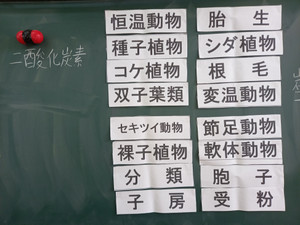 二酸化炭素
恒温動物
胎生
種子植物
シダ植物
コケ植物
根毛
双子葉類
変温動物
セキツイ動物
節足動物
裸子植物
軟体動物
分類
胞子
子房
受粉